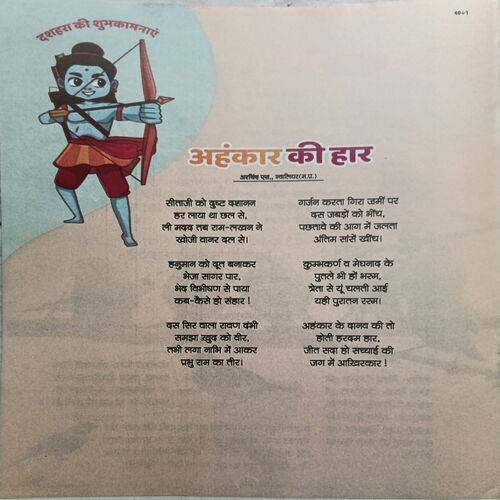 दशहरा की शुभकामनाएं
अहंकार की हार
अरविंद एस., ग्वालियर(म.प्र.)
सीताजी को दुष्ट दशानन
हर लाया था छल से,
ली मदद तब राम-लखन ने
खोजी वानर दल से।
हनुमान को दूत बनाकर
भेजा सागर पार,
भेद विभीषण से पाया
कब-कैसे हो संहार !
दस सिर वाला रावण दंभी
समझा ख़ुद को वीर,
तभी लगा नाभि में आकर
प्रभु राम का तीर।
गर्जन करता गिरा जमीं पर
दस जबड़ों को भींच,
पछतावे की आग में जलता
अंतिम सांसें खींच।
कुम्भकर्ण व मेघनाद के
पुतले भी हों भस्म,
त्रेता से यूं चलती आई
यही पुरातन रस्म।
अहंकार के दानव की तो
होती हरदम हार,
जीत सदा हो सच्चाई की
जग में आख़िरकार !